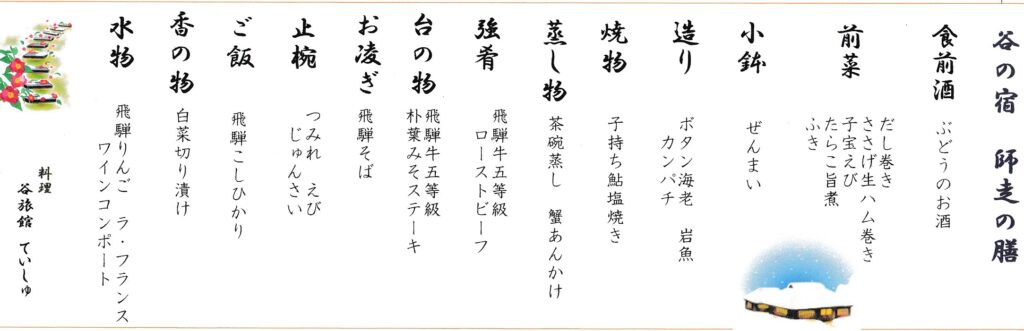 谷の宿　師走の膳
食前酒
ぶどうのお酒
前菜
だし巻き
ささげ生ハム巻き
子宝えび
たらこ旨煮
ふき
小鉢
ぜんまい
造り
ボタン海老　岩魚
カンパチ
焼物
子持ち鮎塩焼き
蒸し物
茶碗蒸し　蟹あんかけ
強肴
飛騨牛五等級
ローストビーフ
台の物
飛騨牛五等級
朴葉みそステーキ
お凌ぎ
飛騨そば
止椀
つみれ　えび
じゅんさい
ご飯
飛騨こしひかり
香の物
白菜切り漬け
水物
飛騨りんご　ラ・フランス
ワインコンポート
料理
谷旅館　ていしゅ